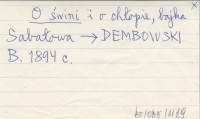 O świni i o chłopie, bajka
Sabałowa → DEMBOWSKI
B. 1894 r.